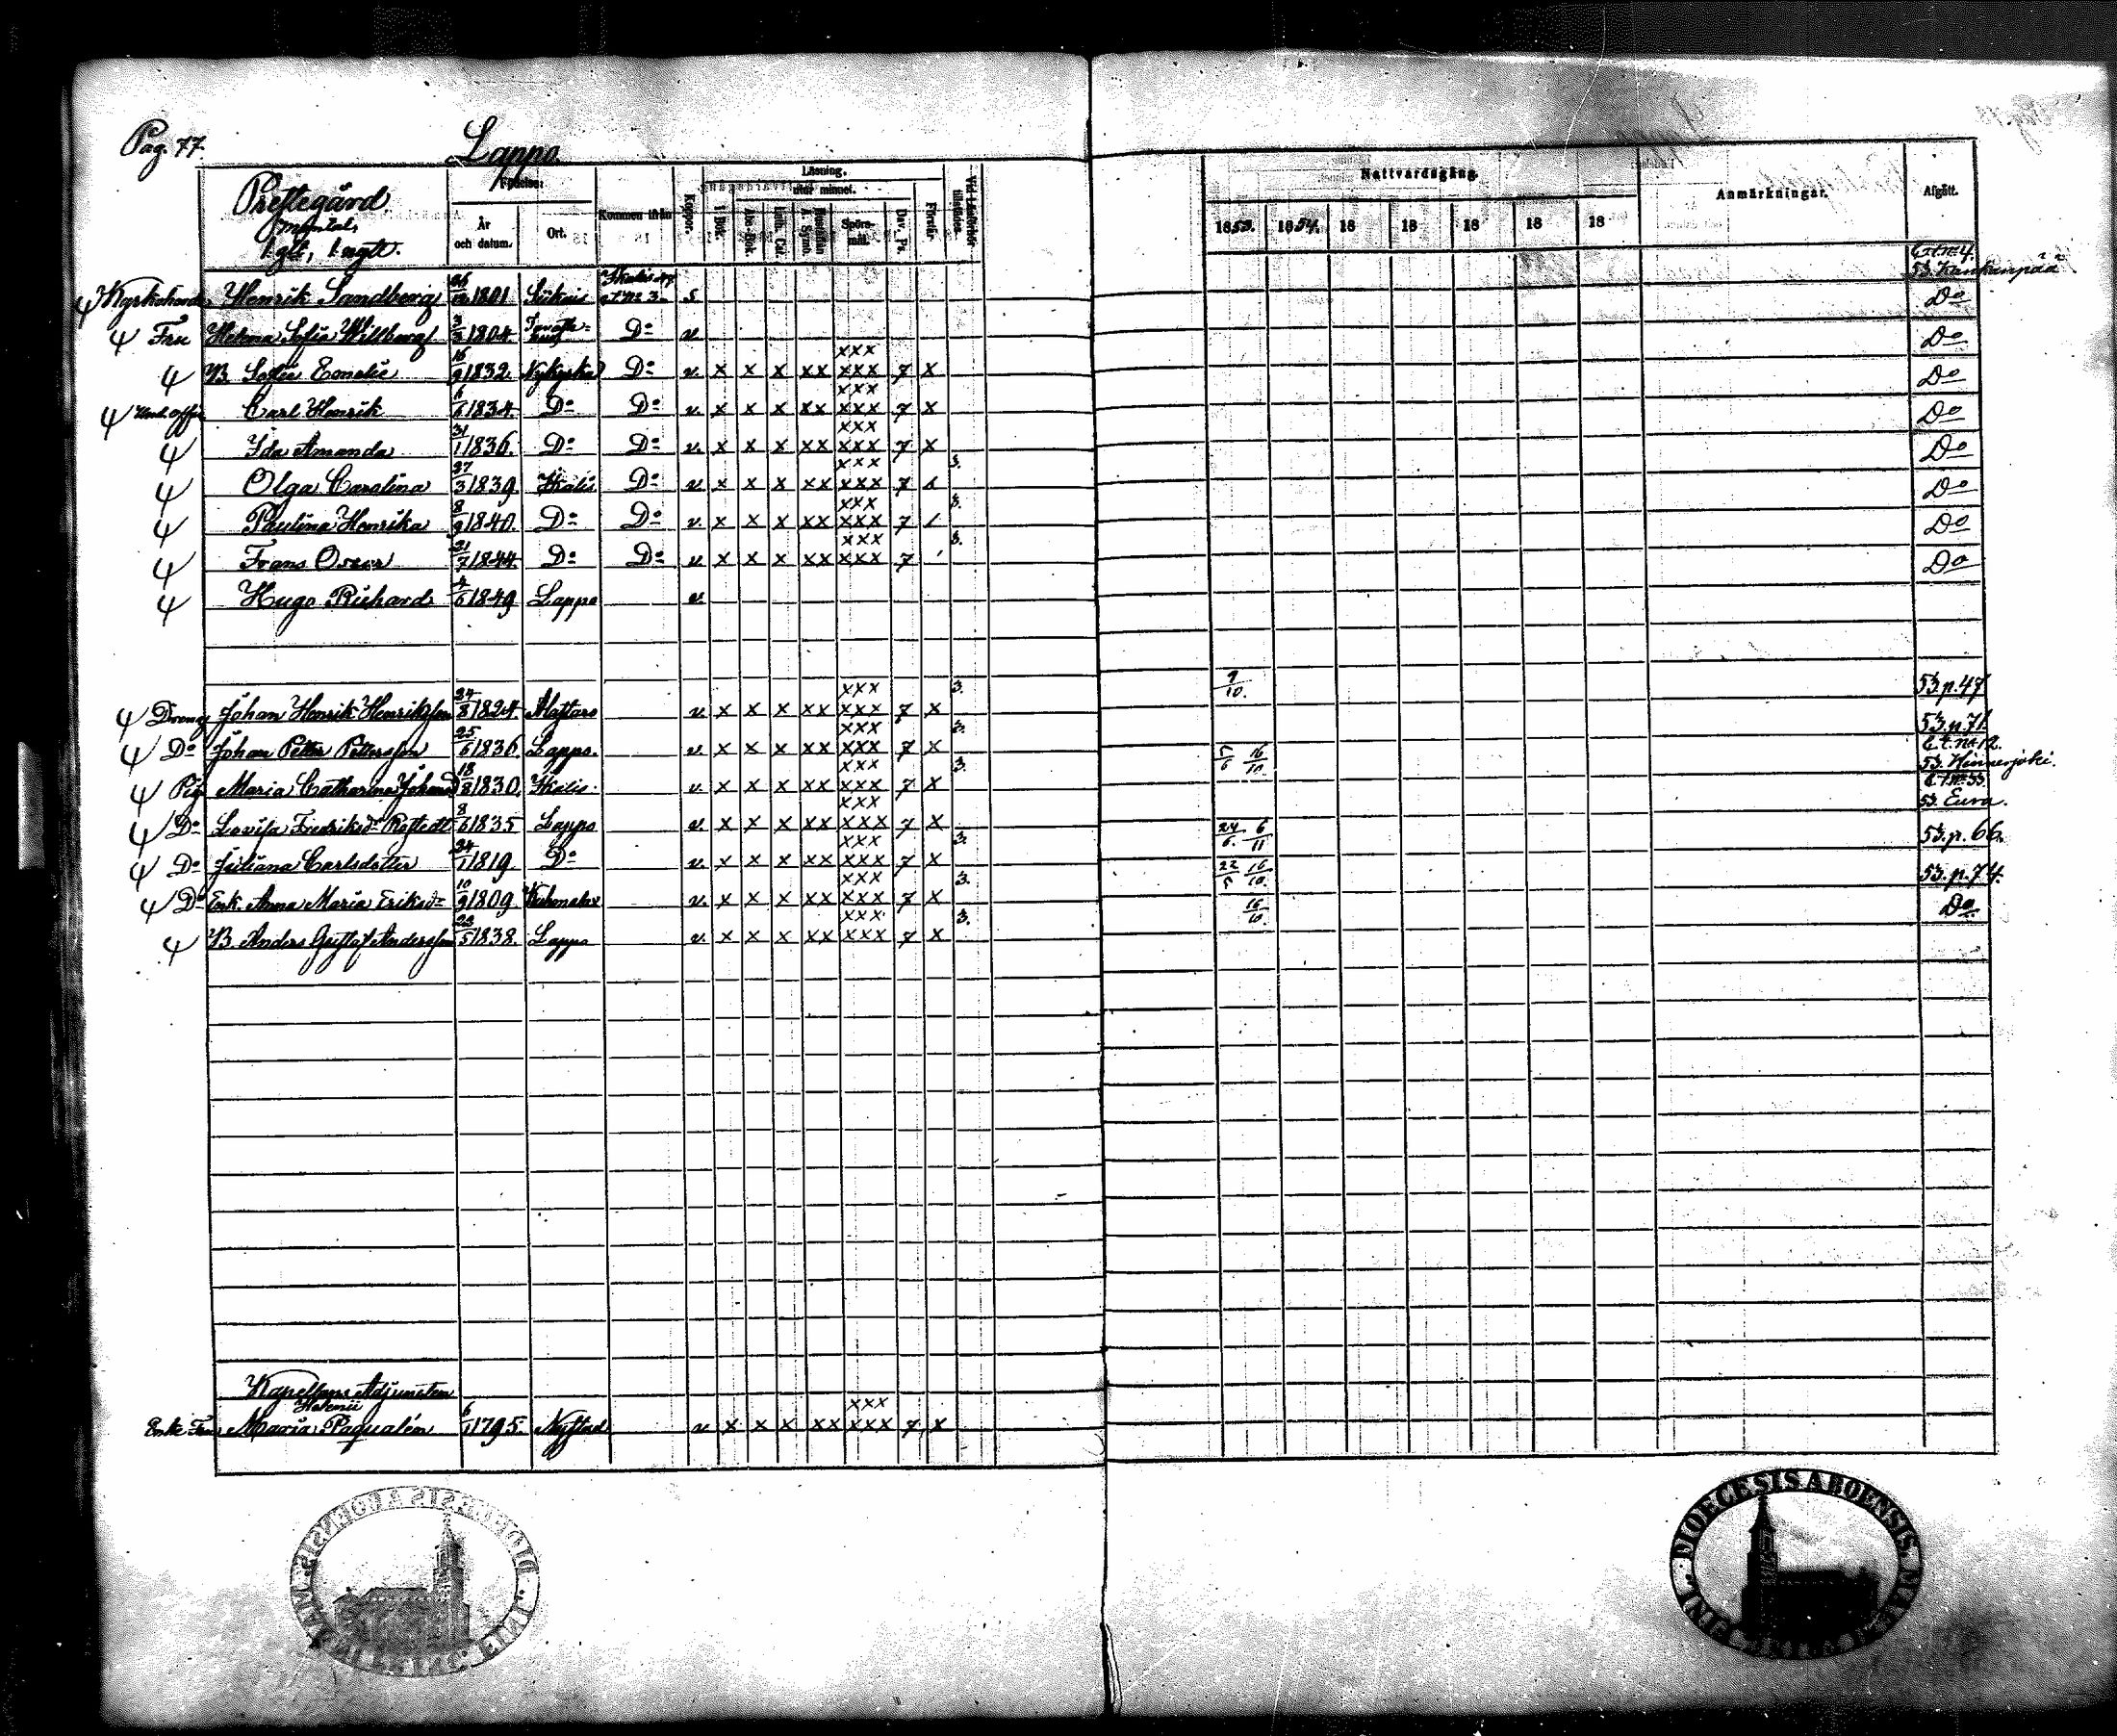 Pag. 77.
Lappo
Prestegård
mantal,
1. glt, 1. ngtt.
Födelse.
År och datum.
Ort.
Kommen ifrån
Koppor.
Läsning.
I Bok.
utur minnet.
Abc-Bok.
Luth. Cat.
Hustaflan A. Symb.
Spörs-mål.
Dav. Ps.
Förstår
Vid Läsförhör tillstädes.
Nattvardsgång.
1853. 1854. 18 18 18 18 18
Anmärkningar.
Afgått.
Kyrkoherde Henrik Sandberg 1801 Ikalis s 53. Kankanpää
Fru Helena Sofia Willberg 3/3 1804 Do v. Do
B. Sofie Emelie 16/9 1832 Nykyrka Do v. x x x xx xxx xxx 7 x Do
Und. offic. Carl Henrik 1834 Do Do v. x x x xx xxx xxx 7 x Do
Ida Amanda 31/1 1836. Do Do v. x x x xx xxx xxx 7 x Do
Olga Carolina 27/3 1839 Ikalis Do v x x x xx xxx xxx 7 3. Do
Paulina Henrika 8/9 1840. Do Do v. x x x xx xxx xxx 7 / 3. Do
Frans Oscar 21/7 1844 Do Do v x x x xx xxx xxx 7 3. Do
Hugo Richard 4/6 1849 Lappo v. Do
Dreng Johan Henrik Henriksson 24/8 1824. Alastaro v. x x x xx xxx xxx 7 x 3. 9/10. 53. p. 47
Do Johan Petter Pettersson 25/6 1836. Lappo. v. x x x xx xxx xxx 7 x 3. 53. p. 71.
Pig. Maria Catharina Johansd 18/8 1830. Ikalis. v. x x x xx xxx xxx 7 x 3. 5/6 16/10. 53. Hinnerjoki.
Do Lovisa Fredriksd. 8/6 1835 Lappo v. x x x xx xxx xxx 7 x 53. Eura.
Do Juliana Carlsdotter 24/1 1819. Do v. x x x xx xxx xxx 7 x 3. 24/6. 6/11 53. p. 66.
Do Enk. Anna Maria Eriksd. 10/9 1809 v. x x x xx xxx xxx 7 x 3. 22/5 16/10. 53. p. 74.
B. Anders Gustaf Andersson 22/5 1838. Lappo v. x x x xx xxx xxx 7 x 3. 16/10. Do
Kapellans Adjuncten
Enke Fru Maria 6/1 1795. Nystad v x x x xx xxx xxx 7 x
DIOECESIS ABOENSIS